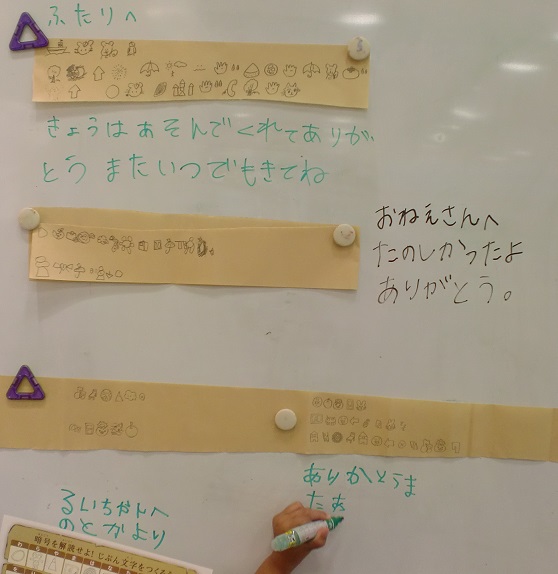 ふたりへ
きょうは あそんでくれてありが
とう またいつでもきてね
おねえさんへ
たのしかったよ
ありがとう。
ありがとうま
たあ
るいちゃんへ
のどかより
暗号を解読せよ!じぶん文字をつくろ